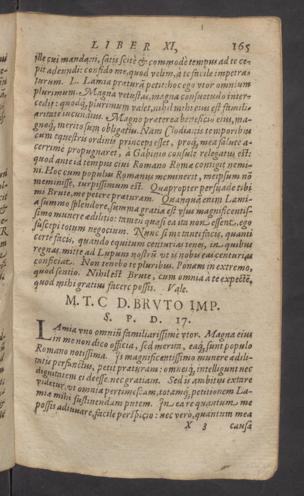 LIBER XI, 165
ille cui mandavi, satis scitè & commodè tempus ad te ce-
pit adeundi: confido me, quod velim, à te facile impetra-
turum. L. Lamia præturā petit: hoc ego vtor omnium
plurimum. Magna vetustas, magna consuetudo inter-
cedit: quodq́; plurimum valet, nihil mihi eius est famili-
aritate iucundius. Magno præterea beneficio eius, ma-
gnoq́; merito sum obligatus. Nam Clodianis temporibus
cum equestris ordinis princeps esset, proq́; mea salute a-
cerrimè propugnaret, à Gabinio consule relegatus est:
quod ante id tempus ciui Romano Romæ contigit nemi-
ni. Hoc cum populus Romanus meminerit, meipsum nō
meminisse, turpissimum est. Quapropter persuade tibi
mi Brute, me petere præturam. Quanquā enim Lami-
a summo splendore, summa gratia est
simo munere ædilitio: tamen quasi ea ita non essent, ego
suscepi totum negocium. Nunc si me tanti facis, quanti
certè facis, quando equitum centurias tenes, in quibus
regnas, mitte ad Lupum nostrū vt is nobis eas centurias
conficiat. Non tenebo te pluribus. Ponam in extremo,
quod sentio. Nihil est Brute, cum omnia à te expectē,
quod mihi gratius facere possis. Vale.
M. T. C D. BRVTO IMP.
S. P. D. 17.
LAmia vno omniū familiarissimè vtor. Magna eius
in me non dico officia, sed merita, eaq́; sunt populo
Romano notissima. Is magnificentissimo munere ædili-
tatis perfunctus, petit præturam: omnesq́; intelligunt nec
dignitatem ei deesse nec gratiam. Sed is ambitus extare
videtur, vt omnia pertimescam, totamq́; petitionem La-
miæ mihi sustinendam putem. In ea re quantum me
possis adiuuare, facile perspicio: nec verò, quantum mea
X 3 causa